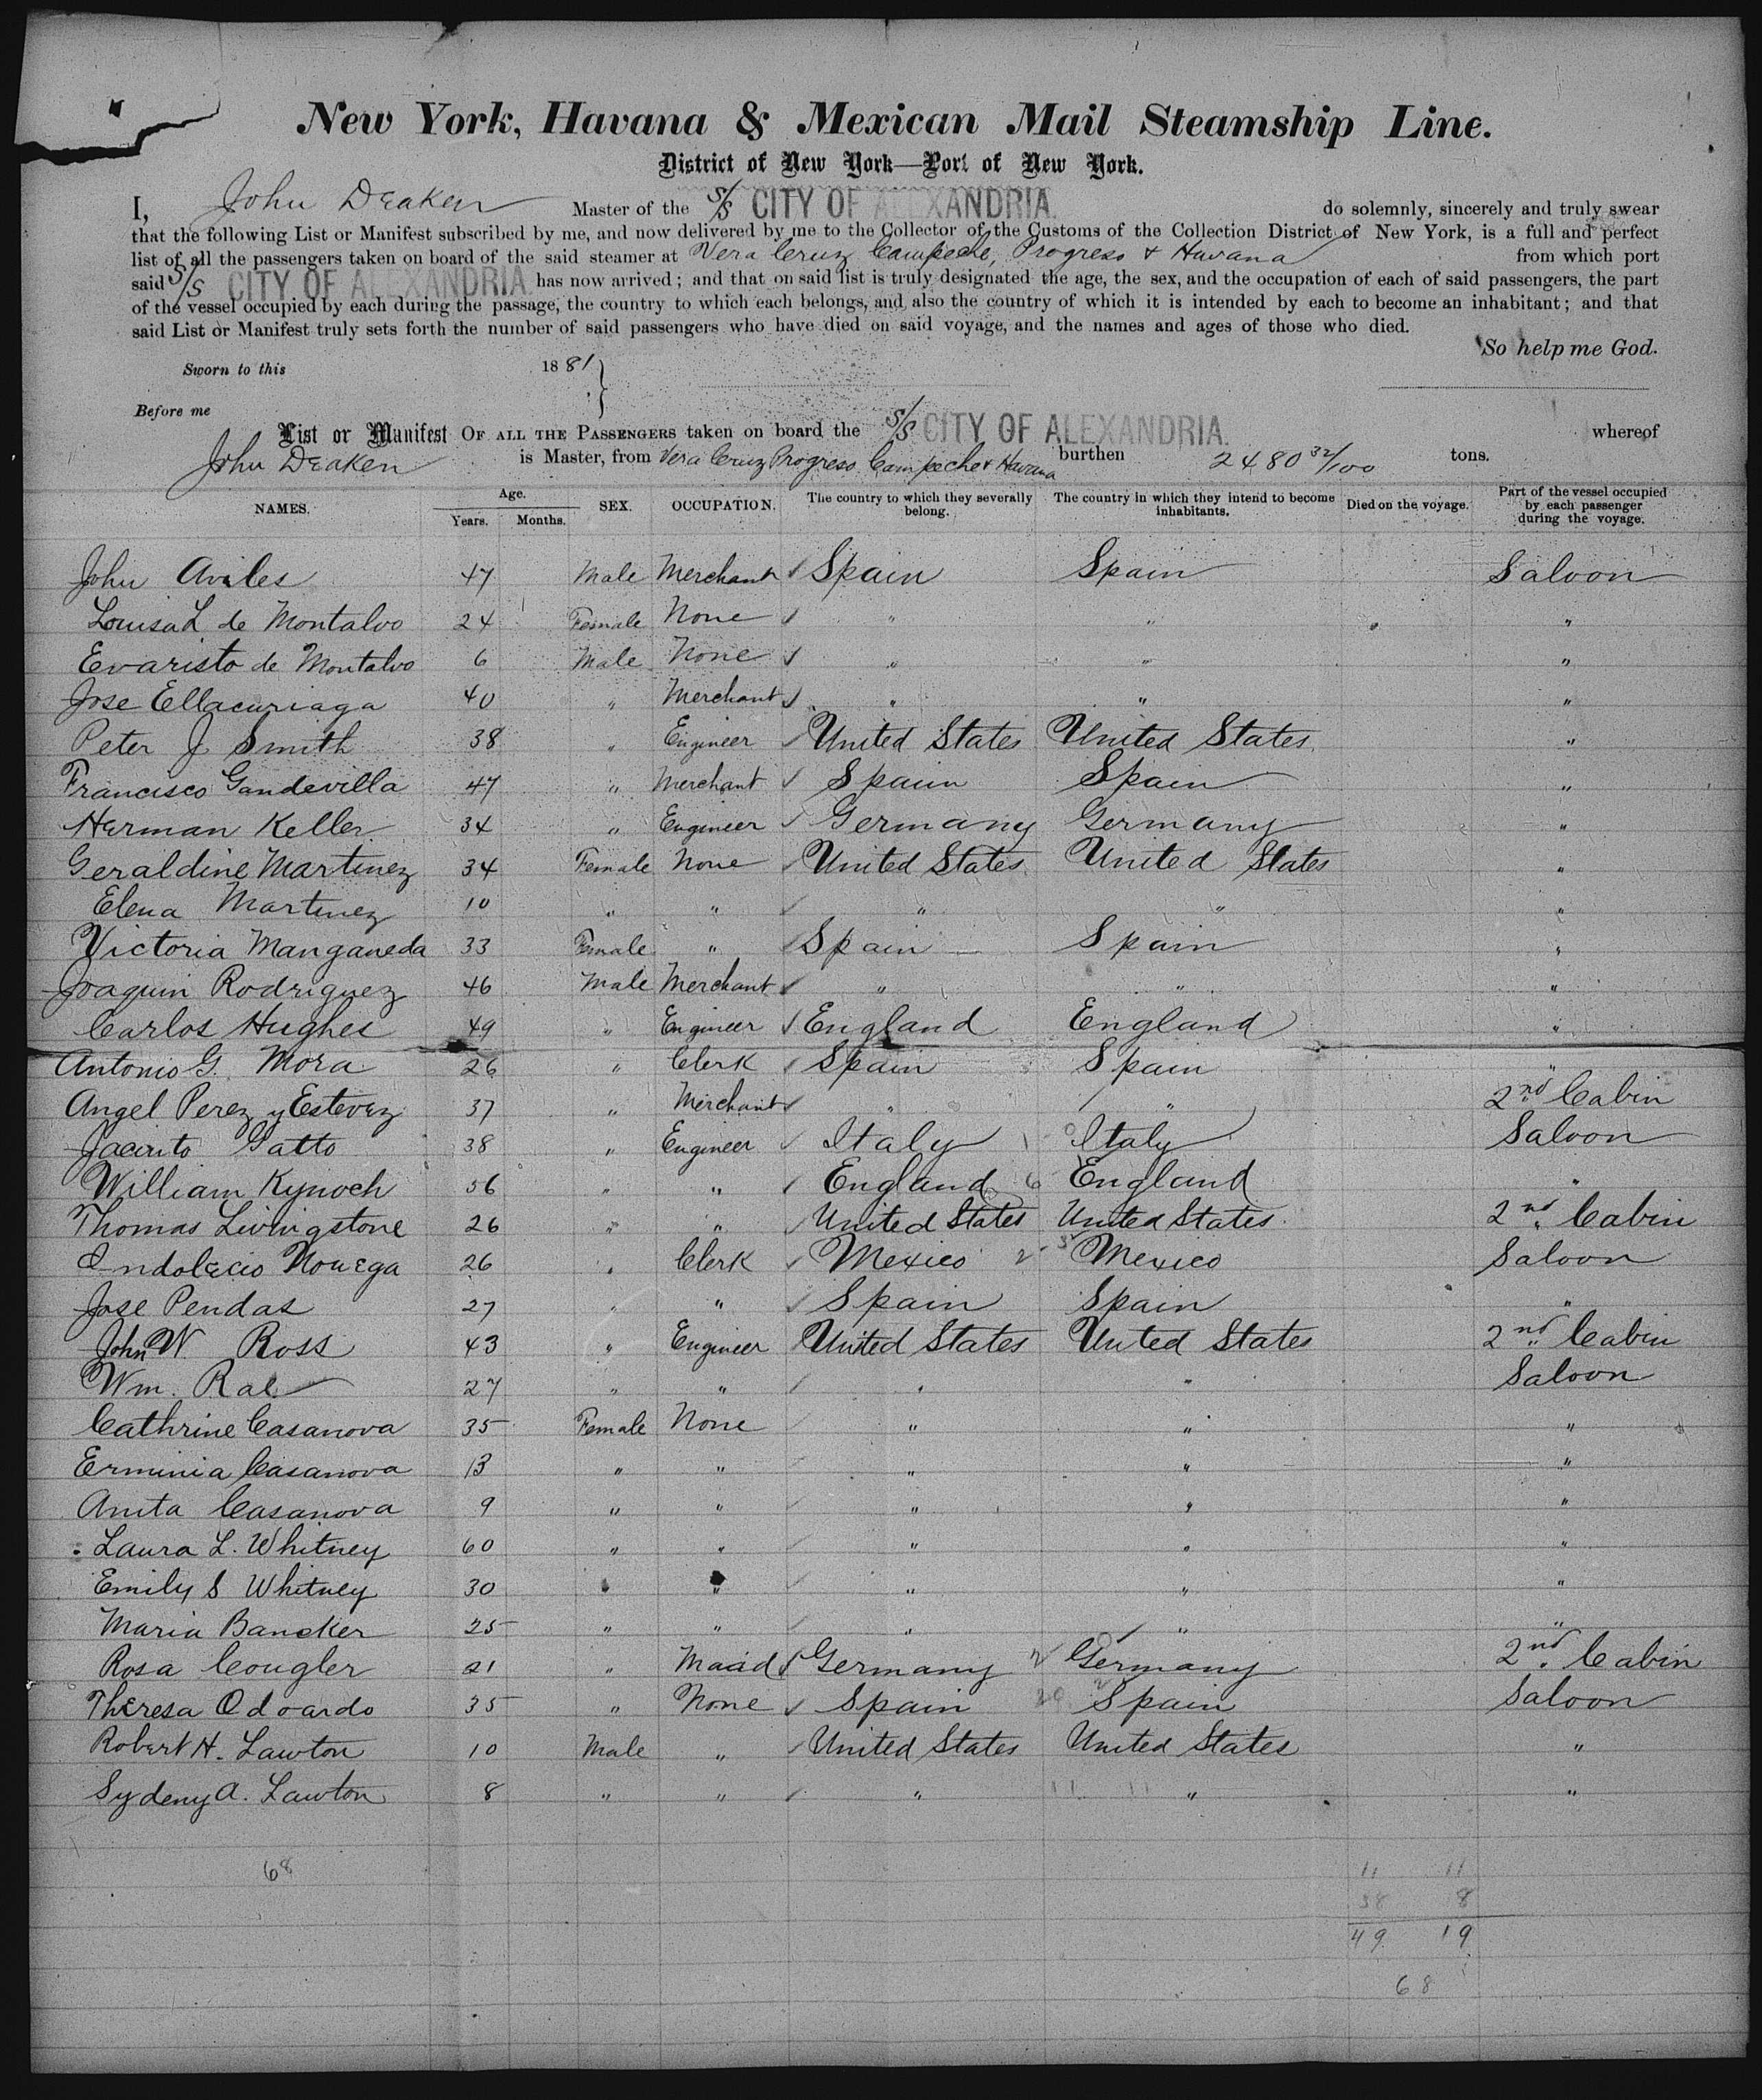 New York, Havana & Mexican Mail Steamship Line.
District of New York—Port of New York.
I, John Deaken Master of the S/S CITY OF ALEXANDRIA. do solemnly, sincerely and truly swear
that the following List or Manifest subscribed by me, and now delivered by me to the Collector of the Customs of the Collection District of New York, is a full and perfect
list of all the passengers taken on board of the said steamer at Vera Cruz Campeche, Progreso & Havana from which port
said S/S CITY OF ALEXANDRIA has now arrived; and that on said list is truly designated the age, the sex, and the occupation of each of said passengers, the part
of the vessel occupied by each during the passage, the country to which each belongs, and also the country of which it is intended by each to become an inhabitant; and that
said List or Manifest truly sets forth the number of said passengers who have died on said voyage, and the names and ages of those who died.
So help me God.
Sworn to this 1881
Before me
List or Manifest OF ALL THE PASSENGERS taken on board the S/S CITY OF ALEXANDRIA. whereof
John Deaken is Master, from Vera Cruz Progreso Campeche & Havana burthen 2480 32/100 tons.
NAMES. Age. Years. Months. SEX. OCCUPATION. The country to which they severally belong. The country in which they intend to become inhabitants. Died on the voyage. Part of the vessel occupied by each passenger during the voyage.
John Aviles 47 Male Merchant Spain Spain Saloon
Louisa L de Montalvo 24 Female None " " "
Evaristo de Montalvo 6 Male None " " "
Jose Ellacuriaga 40 " Merchant " " "
Peter J Smith 38 " Engineer United States United States "
Francisco Gandevilla 47 " Merchant Spain Spain "
Herman Keller 34 " Engineer Germany Germany "
Geraldine Martinez 34 Female None United States United States "
Elena Martinez 10 " " " " "
Victoria Manganeda 33 Female " Spain Spain "
Joaquin Rodriguez 46 Male Merchant " " "
Carlos Hughes 49 " Engineer England England "
Antonio G. Mora 26 " Clerk Spain Spain "
Angel Perez y Estevez 37 " Merchant " " 2nd Cabin
Jacinto Gatto 38 " Engineer Italy Italy Saloon
William Kynoch 56 " " England England "
Thomas Livingstone 26 " " United States United States 2nd Cabin
Indolecio Noriega 26 " Clerk Mexico Mexico Saloon
Jose Pendas 27 " " Spain Spain "
John W. Ross 43 " Engineer United States United States 2nd Cabin
Wm. Rae 27 " " " " Saloon
Cathrine Casanova 35 Female None " " "
Erminia Casanova 13 " " " " "
Anita Casanova 9 " " " " "
Laura L. Whitney 60 " " " " "
Emily S Whitney 30 " " " " "
Maria Bancker 25 " " " " "
Rosa Cougler 21 " Maid Germany Germany 2nd Cabin
Theresa Odoardo 35 " None Spain Spain Saloon
Robert H. Lawton 10 Male " United States United States "
Sydeny A. Lawton 8 " " " " "
68
11 11
38 8
49 19
68